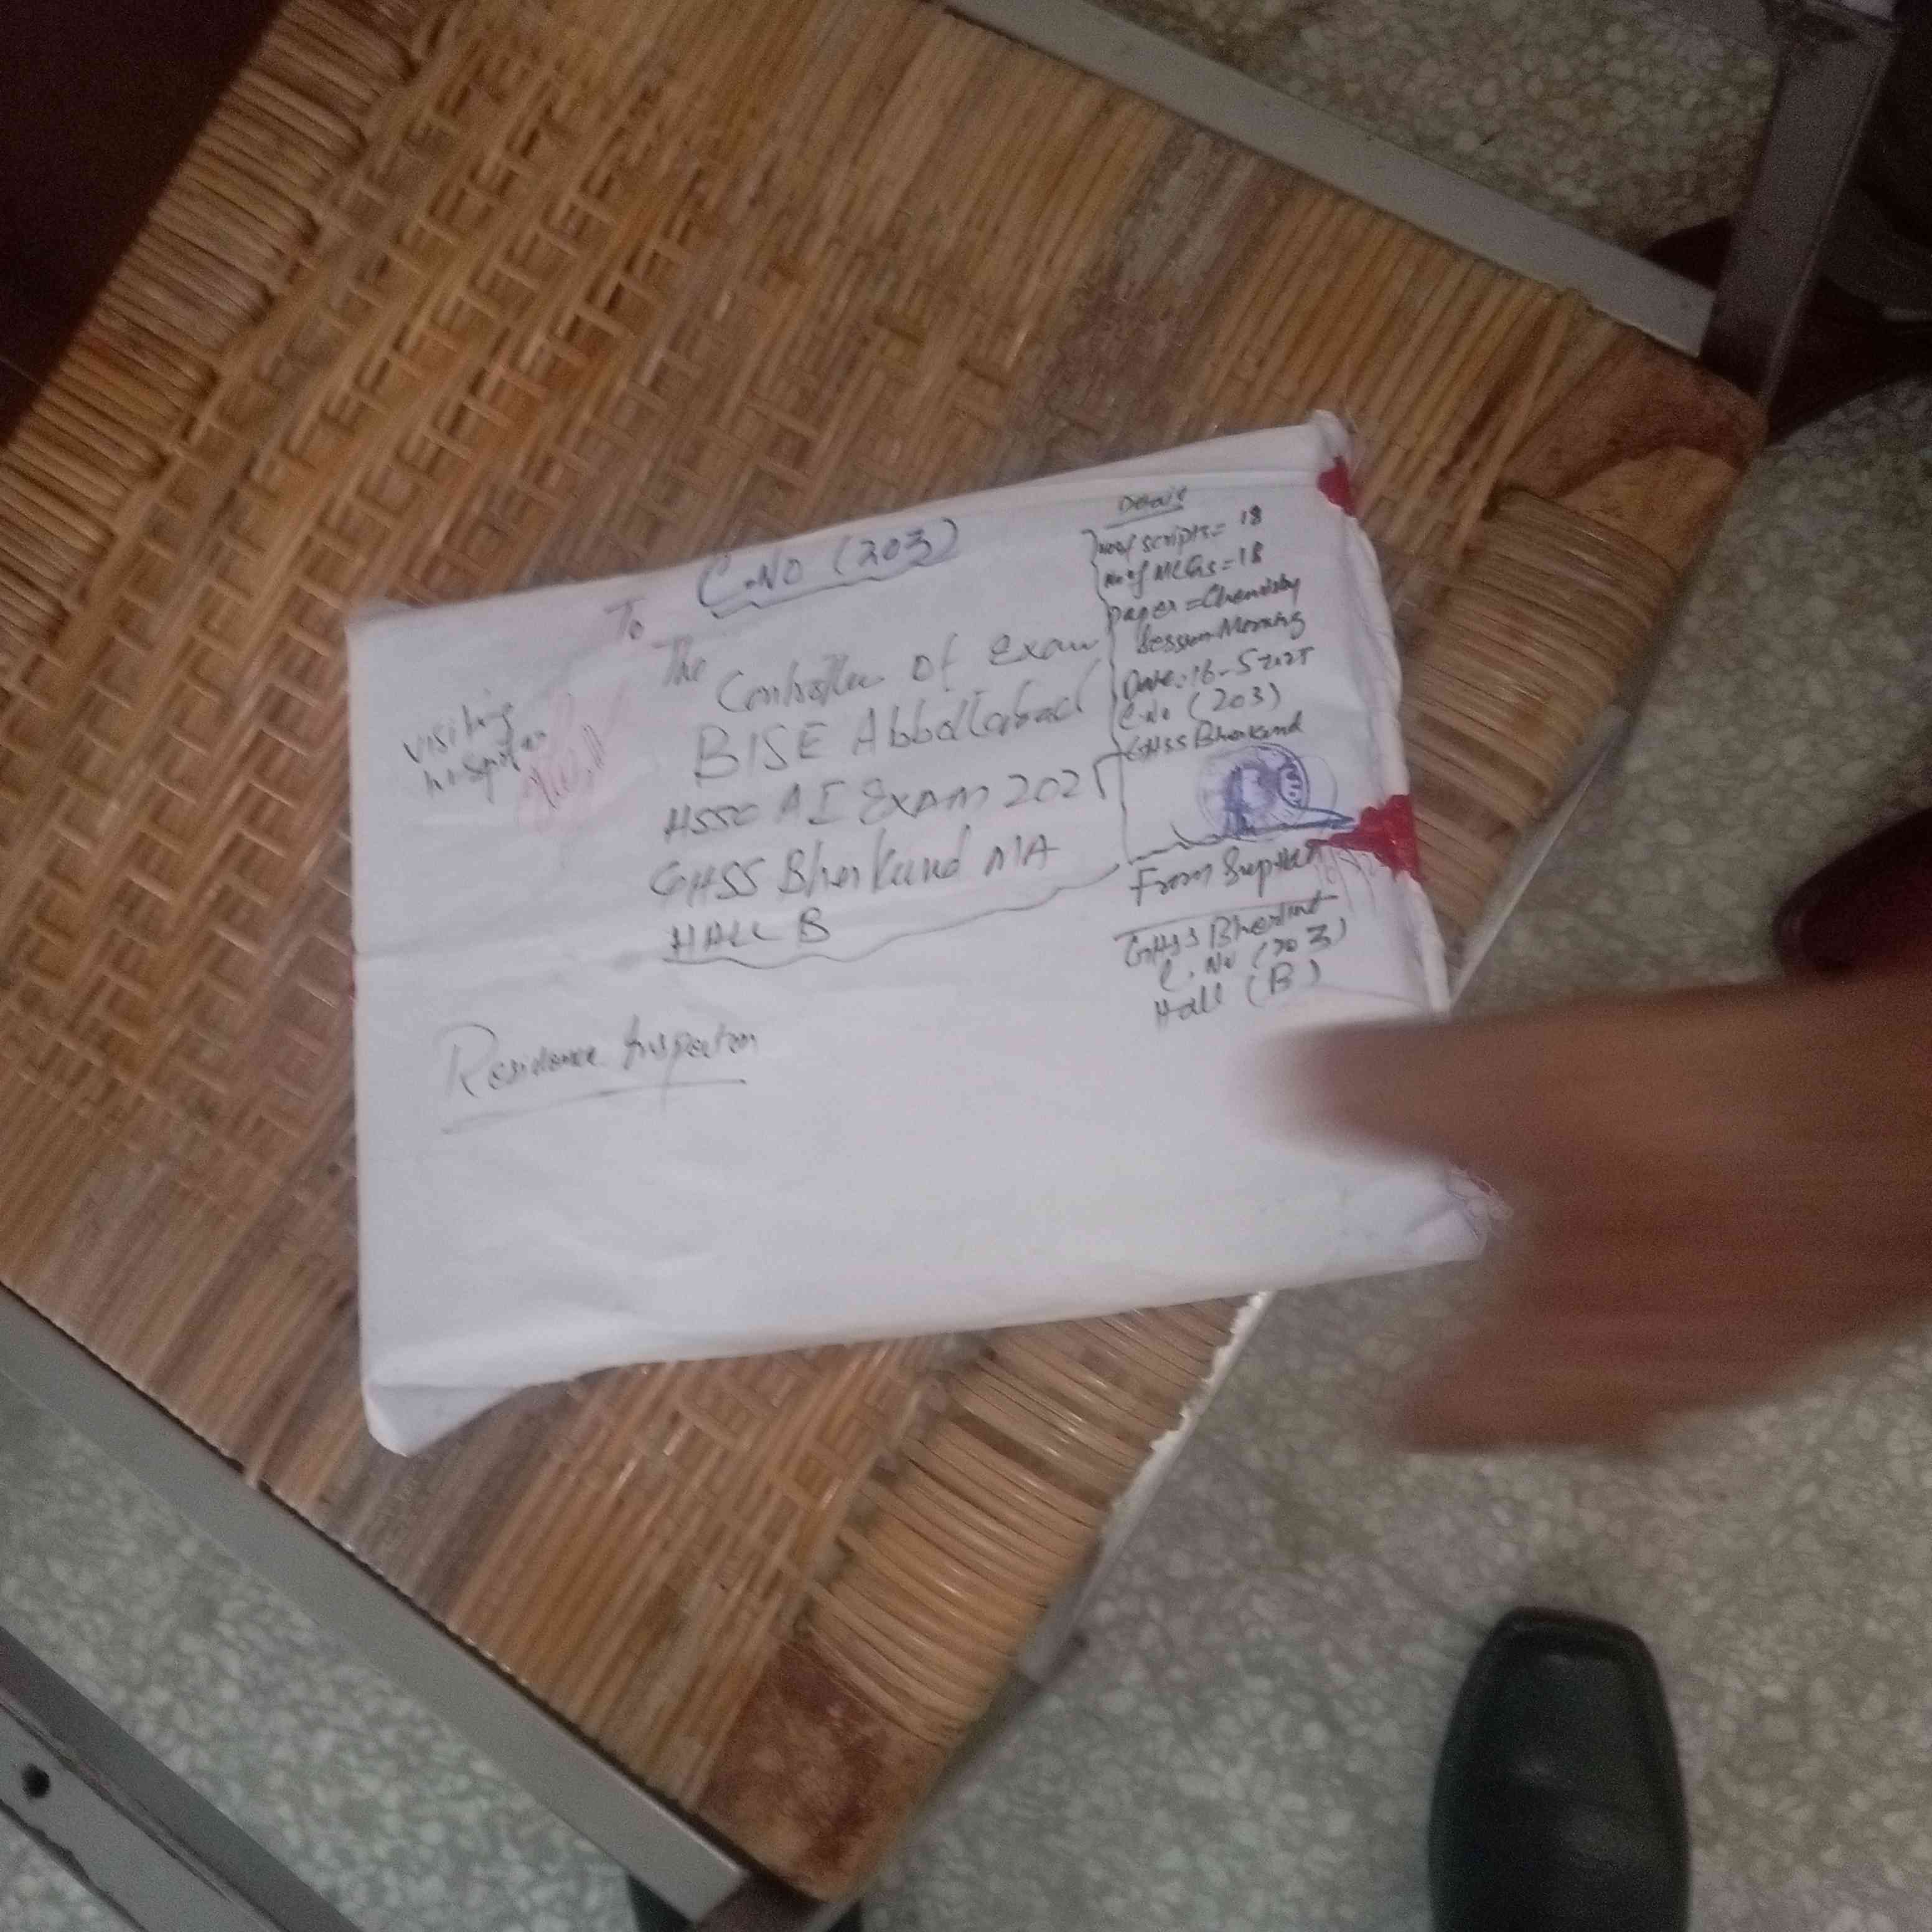 C.NO (203)
To
The
Controller of Exam
BISE Abbottabad
HSSC A I Exam 2025
GHSS Bherkund MA
HALL B
visiting
Residence Inspector
Detail
No of scripts = 18
No of MCQs = 18
paper = Chemistry
Session Morning
Date: 16-5-2025
C.No (203)
GHSS Bherkund
From Supdtt
GHSS Bherkund
C. No (203)
Hall (B)